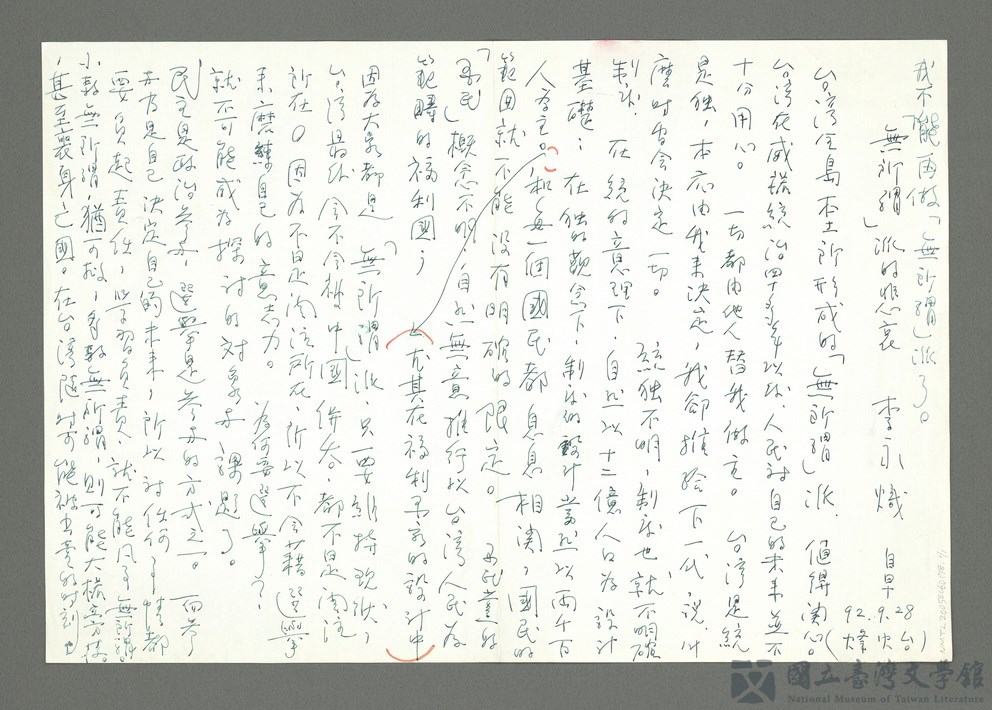 我不能再做「無所謂」派了。
「無所謂」派的悲哀 李永熾 自早
92.9.28
台灣全島本土所形成的「無所謂」派，值得關心
台灣在威權統治四十多年以致人民對自己的未來並不
十分用心。一切都由他人替我做主。台灣是統
是獨，本應由我來決定，我卻推給下一代，說什
麼時會決定一切。統獨不明，制度也就不明確
制外 在統的意理下，自然以十二億人口為設計
基礎；在獨的觀念下，制度的設計當然以兩千萬
人為主。和每一個國民都息息相關，國民的
範圍就不能沒有明確的限定。
「國民」概念不明，自然無意推行以台灣人民為
範疇的福利國；（尤其在福利國家的設計中）
因為大家都是「無所謂」派，只要維持現狀，
台灣最終會不會被中國併吞，都不是關注
所在。因為不是關注所在，所以不會藉選舉
來磨練自己的意志力。為何要選舉？
就不可能成為探討的對象與課題了。
民主是政治參與，選舉是參與的方式之一。而參
與乃是自己決定自己的未來，所以對任何事情都
要負起責任，學習負責，就不能凡事無所謂。
小輸無所謂，猶可救，多輸無所謂，則可能大權旁落。
，甚至喪身亡國。在台灣隨時可能被出賣的時刻，也
NMTL20050260178 1/1
國立臺灣文學館
National Museum of Taiwan Literature